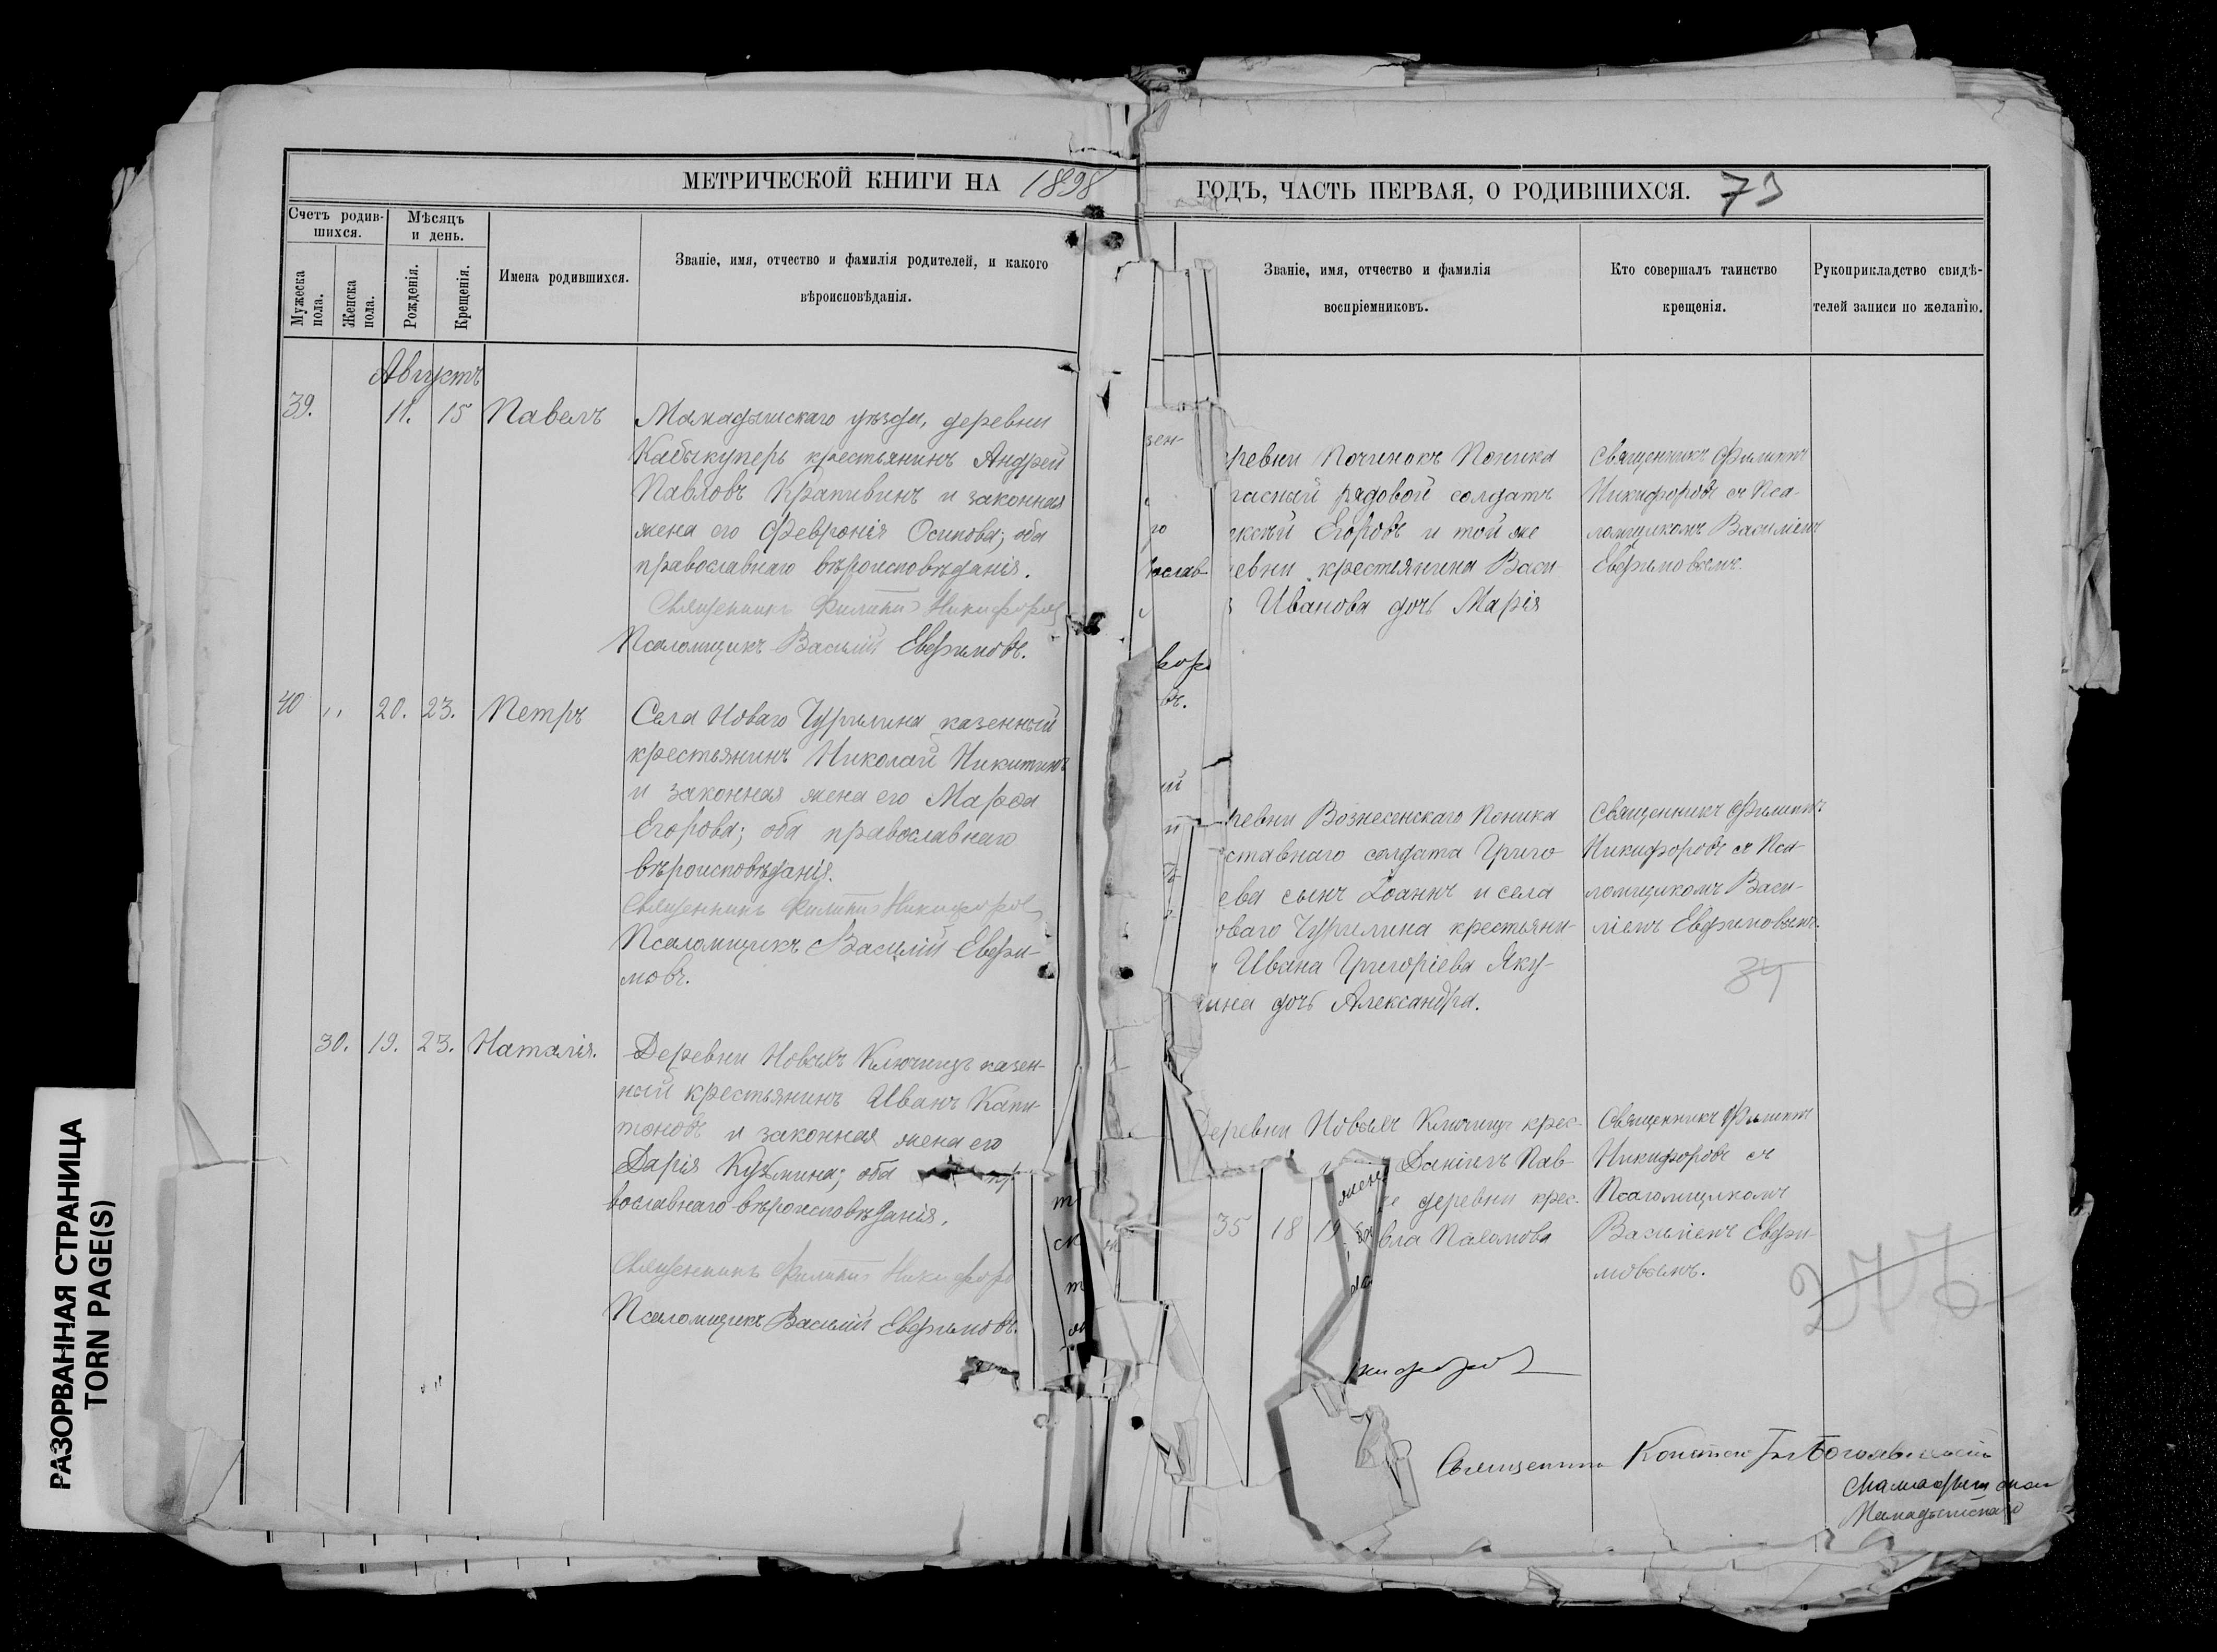 МЕТРИЧЕСКОЙ КНИГИ НА 1898
ГОДЪ, ЧАСТЬ ПЕРВАЯ, О РОДИВШИХСЯ. 73
Счетъ родив-
шихся.
Мужеска
пола.
Женска
пола.
Мѣсяцъ
и день.
Рожденія.
Крещенія.
Имена родившихся.
Званіе, имя, отчество и фамилія родителей, и какого
вѣроисповѣданія.
Званіе, имя, отчество и фамилія
воспріемниковъ.
Кто совершалъ таинство
крещенія.
Рукоприкладство свидѣ-
телей записи по желанію.
Августъ
39. 11. 15 Павелъ
Мамадышскаго уѣзда, деревни
Кабыкуперь крестьянинъ Андрей
Павловъ Крапивинъ и законная
жена его Февронія Осипова; оба
православнаго вѣроисповѣданія.
Священникъ Филиппъ Никифоровъ
Псаломщикъ Василій Евфимовъ.
ревни Починокъ Поника
пасный рядовой солдатъ
ексѣй Егоровъ и той же
евни крестьянина Васи
Иванова дочь Марія
Священникъ Филиппъ
Никифоровъ съ Пса-
ломщикомъ Василіемъ
Евфимовымъ.
40 ,, 20. 23. Петръ
Села Новаго Чурилина казенный
крестьянинъ Николай Никитинъ
и законная жена его Марфа
Егорова; оба православнаго
вѣроисповѣданія.
Священникъ Филиппъ Никифоровъ
Псаломщикъ Василій Евфи-
мовъ.
ревни Вознесенскаго Поника
ставнаго солдата Григо
ева сынъ Іоаннъ и села
оваго Чурилина крестьяни-
Ивана Григоріева Яку-
ина дочь Александра.
Священникъ Филиппъ
Никифоровъ съ Пса-
ломщикомъ Васи-
ліемъ Евфимовымъ.
34
30. 19. 23. Наталія.
Деревни Новыхъ Ключищъ казен-
ный крестьянинъ Иванъ Капи-
тоновъ и законная жена его
Дарія Кузьмина; оба пр
вославнаго вѣроисповѣданія.
Священникъ Филиппъ Никифоро
Псаломщикъ Василій Евфимовъ.
Деревни Новыхъ Ключищъ крес-
Даніилъ Пав-
деревни крес-
вла Пахомова
35 18 19
Священникъ Филиппъ
Никифоровъ съ
Псаломщикомъ
Василіемъ Евфи-
мовымъ.
кифоровъ
Священникъ
Мамадышскаго
РАЗОРВАННАЯ СТРАНИЦА
TORN PAGE(S)